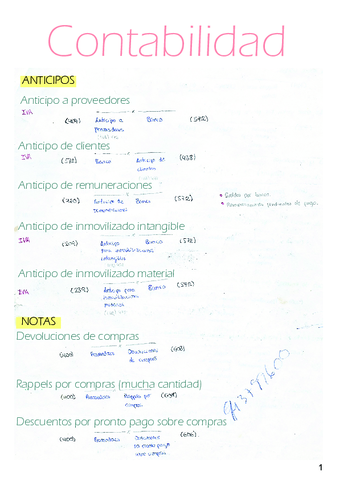 Contabilidad
ANTICIPOS
Anticipo a proveedores
IVA
Anticipo a Banco (572)
proveedores
Anticipo de clientes
IVA
(572) Banco Anticipo de (438)
clientes
Anticipo de remuneraciones
Anticipo de Banco (572)
remuneraciones
Anticipo de inmovilizado intangible
IVA
(209) Anticipo Banco (572)
para inmovilizaciones
intangibles
Anticipo de inmovilizado material
IVA
(239) Anticipo para Banco (572)
inmovilizaciones
material
NOTAS
Devoluciones de compras
(400) Proveedores Devoluciones (608)
de compras
Rappels por compras (mucha cantidad)
(400) Proveedores Rappels por (609)
compras
Descuentos por pronto pago sobre compras
(400) Proveedores Descuentos (606)
1